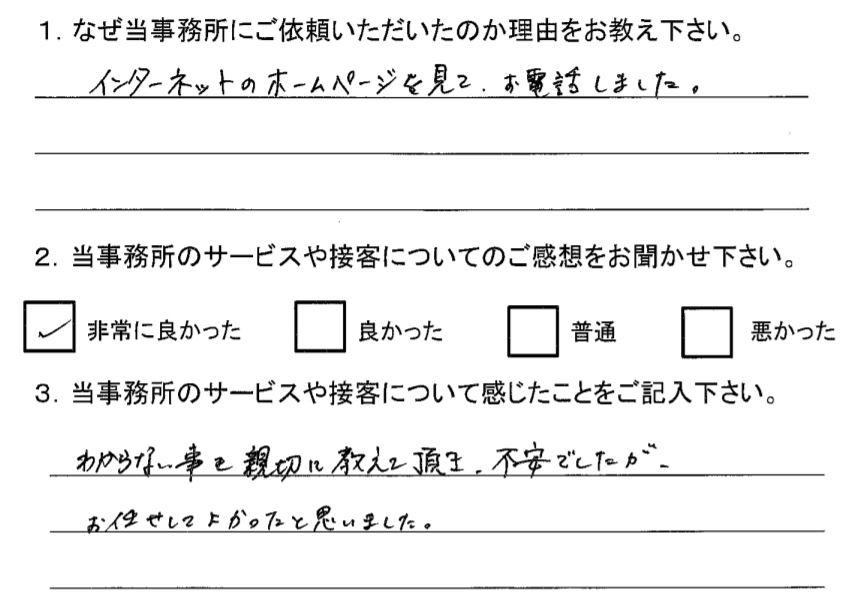 1. なぜ当事務所にご依頼いただいたのか理由をお教え下さい。
インターネットのホームページを見て、お電話しました。
2. 当事務所のサービスや接客についてのご感想をお聞かせ下さい。
非常に良かった 良かった 普通 悪かった
3. 当事務所のサービスや接客について感じたことをご記入下さい。
わからない事を親切に教えて頂き、不安でしたが、
お任せしてよかったと思いました。